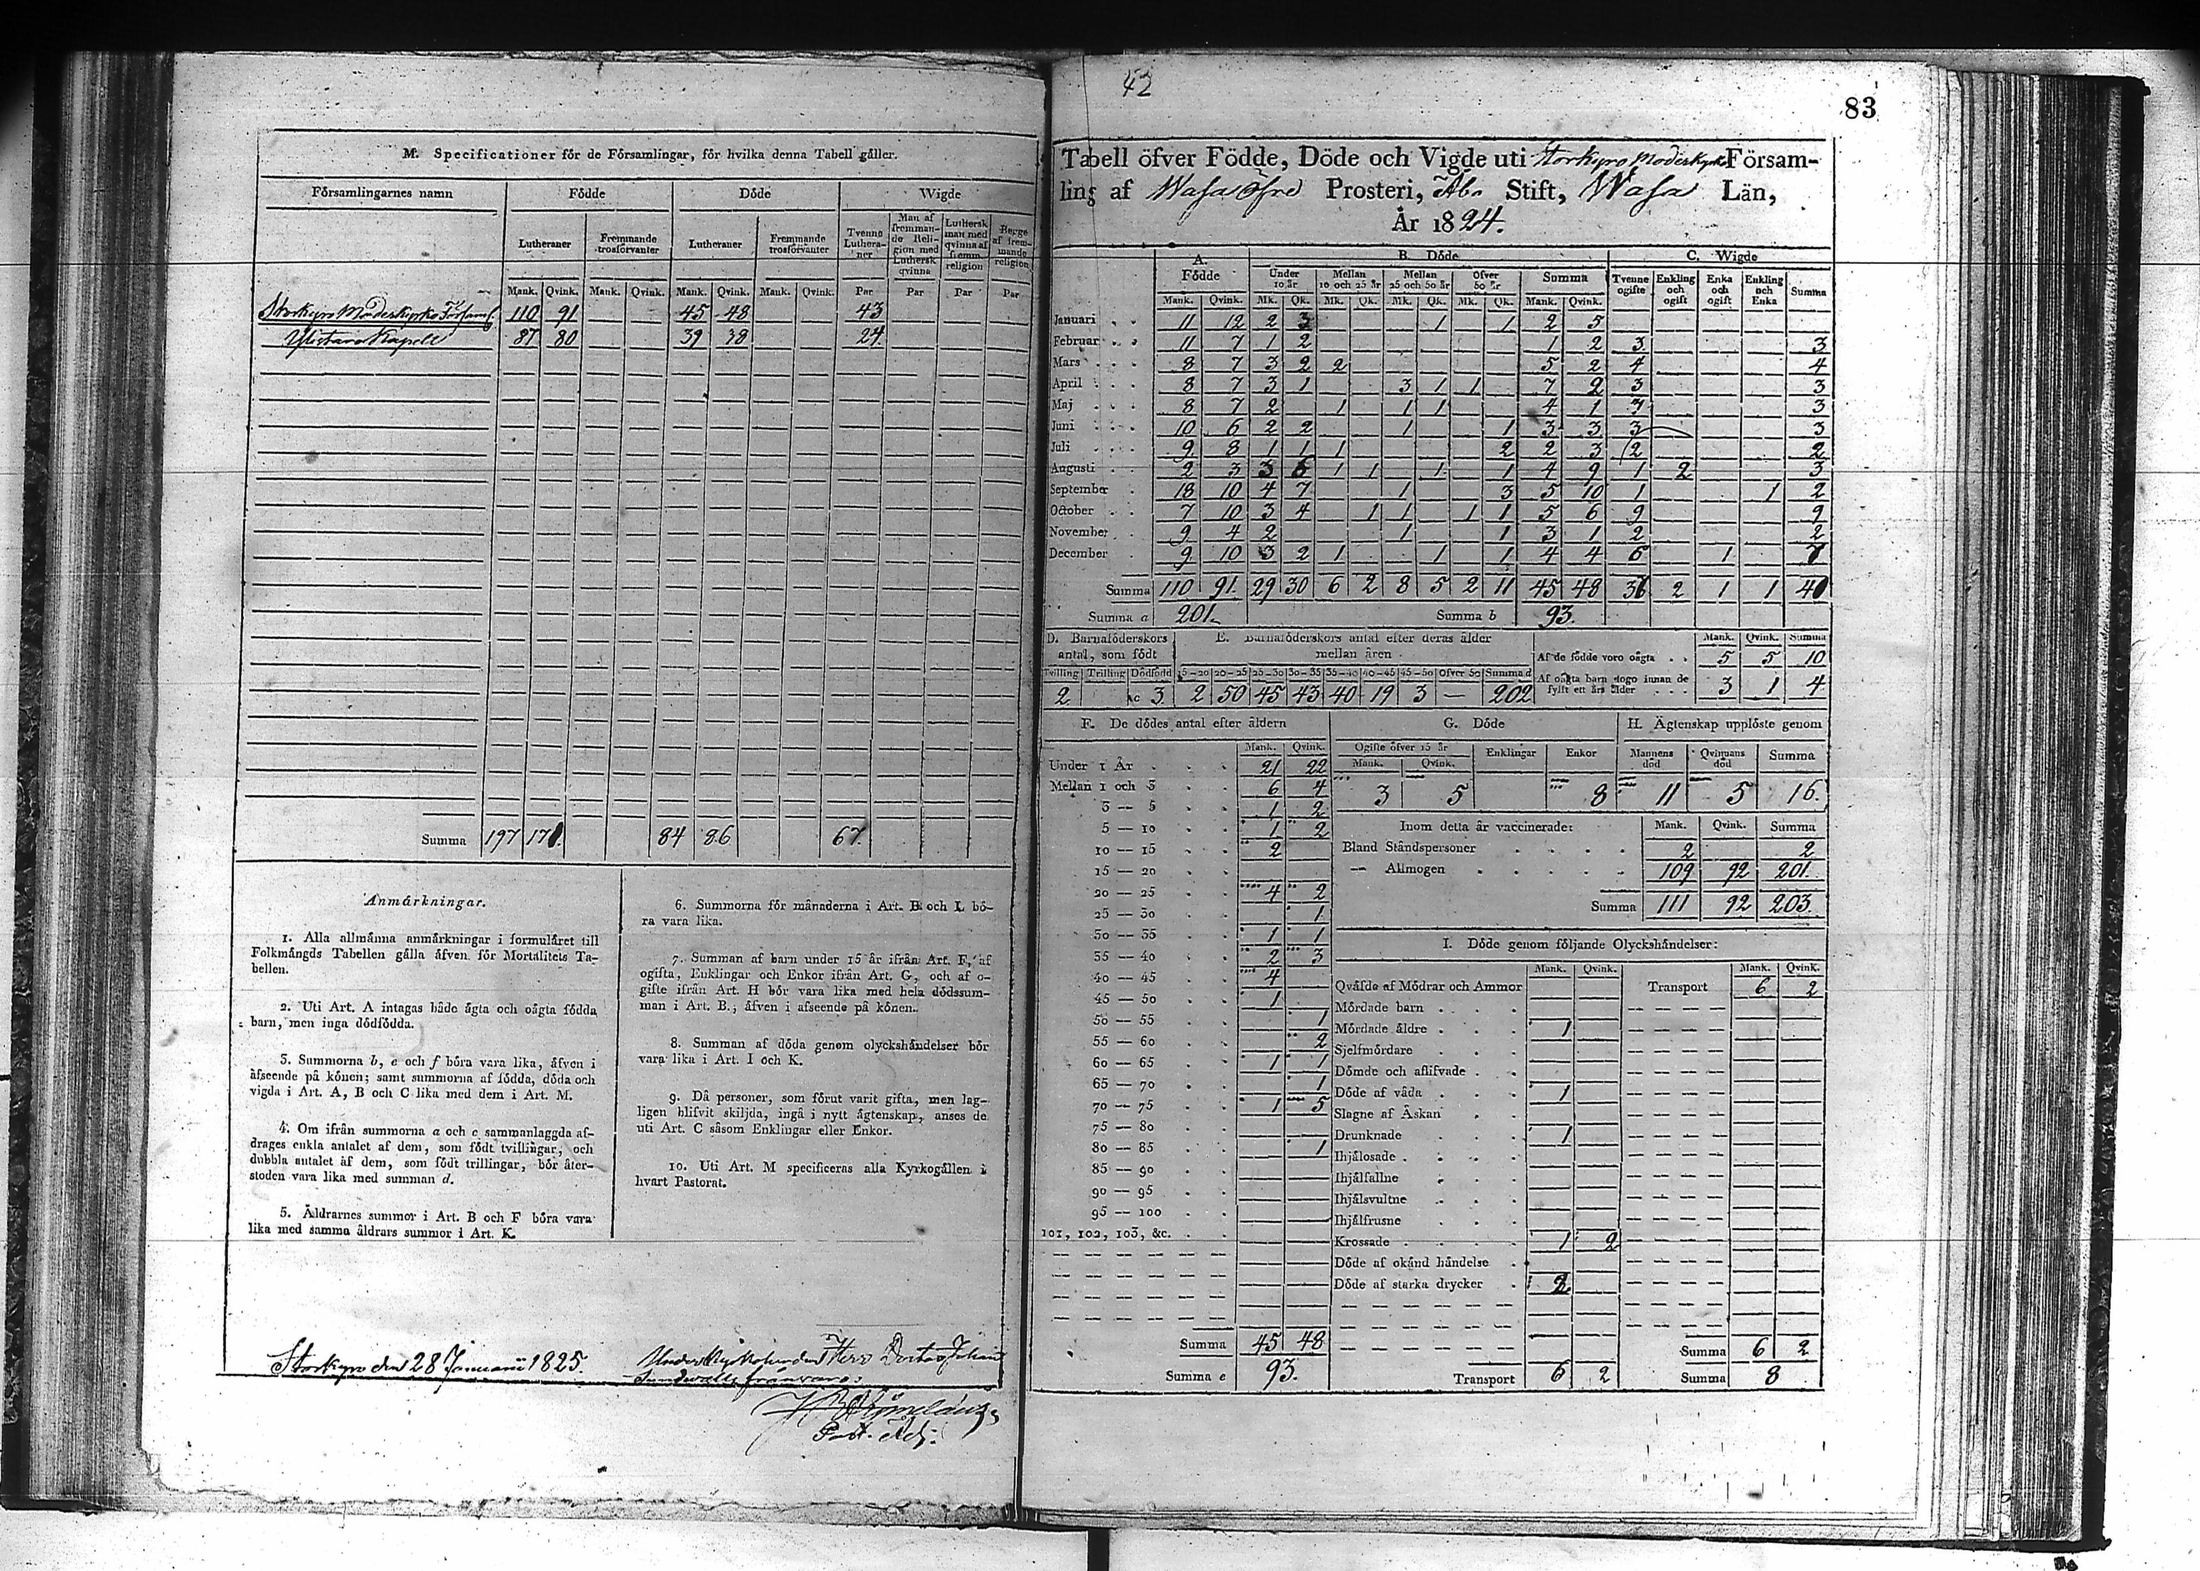 M. Specificationer för de Församlingar, för hvilka denna Tabell gäller.
Församlingarnes namn Födde Döde Wigde
Lutheraner Fremmande trosförvanter Lutheraner Fremmande trosförvanter Tvenne Lutheraner Man af fremmande Religion med Luthersk qvinna Luthersk man med qvinna af fremm. religion Begge af fremmande religion
Mank. Qvink. Mank. Qvink. Mank. Qvink. Mank. Qvink. Par Par Par Par
Storkyro Moderkyrko Församl 110 91 45 48 43
Ylistaro Kapell 87 80 39 38 24
Summa 197 171 84 86 67
Anmärkningar.
1. Alla allmänna anmärkningar i formuläret till
Folkmängds Tabellen gälla äfven för Mortalitets Ta-
bellen.
2. Uti Art. A intagas både ägta och oägta födda
barn, men inga dödfödda.
3. Summorna b, e och f böra vara lika, äfven i
afseende på könen; samt summorna af födda, döda och
vigda i Art. A, B och C lika med dem i Art. M.
4. Om ifrån summorna a och c sammanlaggda af-
drages enkla antalet af dem, som födt tvillingar, och
dubbla antalet af dem, som födt trillingar, bör åter-
stoden vara lika med summan d.
5. Åldrarnes summor i Art. B och F böra vara
lika med samma åldrars summor i Art. K.
6. Summorna för månaderna i Art. B och L bö-
ra vara lika.
7. Summan af barn under 15 år ifrån Art. F, af
ogifta, Enklingar och Enkor ifrån Art. G, och af o-
gifte ifrån Art. H bör vara lika med hela dödssum-
man i Art. B.; äfven i afseende på könen.
8. Summan af döda genom olyckshändelser bör
vara lika i Art. I och K.
9. Då personer, som förut varit gifta, men lag-
ligen blifvit skiljda, ingå i nytt ägtenskap, anses de
uti Art. C såsom Enklingar eller Enkor.
10. Uti Art. M specificeras alla Kyrkogällen i
hvart Pastorat.
Storkyro den 28 Januarii 1825.
Under Kyrkoherden Herr Doctor Johan
Sundwalls frånvaro:
Past. Adj:
42
83
Tabell öfver Födde, Döde och Vigde uti Storkyro Moderkyrko Försam-
ling af Wasa Öfre Prosteri, Åbo Stift, Wasa Län,
År 1824.
A. Födde B. Döde C. Wigde
Under 10 år Mellan 10 och 25 år Mellan 25 och 50 år Öfver 50 år Summa Tvenne ogifte Enkling och ogift Enka och ogift Enkling och Enka Summa
Mank. Qvink. Mk. Qk. Mk. Qk. Mk. Qk. Mk. Qk. Mank. Qvink.
Januari 11 12 2 3 1 1 2 5
Februar 11 7 1 2 1 2 3 3
Mars 8 7 3 2 2 5 2 4 4
April 8 7 3 1 3 1 1 7 2 3 3
Maj 8 7 2 1 1 1 4 1 3 3
Juni 10 6 2 2 1 1 3 3 3 3
Juli 9 8 1 1 1 2 2 3 2 2
Augusti 2 3 3 6 1 1 1 1 4 9 1 2 3
September 18 10 4 7 1 3 5 10 1 1 2
October 7 10 3 4 1 1 1 1 5 6 9 9
November 9 4 2 1 1 3 1 2 2
December 9 10 3 2 1 1 1 4 4 6 1 7
Summa 110 91 29 30 6 2 8 5 2 11 45 48 2 1 1
Summa a 201. Summa b 93.
D. Barnaföderskors antal, som födt
E. Barnaföderskors antal efter deras ålder mellan åren
Mank. Qvink. Summa
Tvilling Trilling Dödfödd 15-20 20-25 25-30 30-35 35-40 40-45 45-50 Öfver 50 Summa d
2 c 3 2 50 45 43 40 19 3 — 202
Af de födde voro oägta 5 5 10
Af oägta barn dogo innan de fyllt ett års ålder 3 1 4
F. De dödes antal efter åldern
Mank. Qvink.
Under 1 År 21 22
Mellan 1 och 3 6 4
3 — 5 1 2
5 — 10 1 2
10 — 15 2
15 — 20
20 — 25 4 2
25 — 30 1
30 — 35 1 1
35 — 40 2 3
40 — 45 4
45 — 50 1
50 — 55 1
55 — 60 2
60 — 65 1 1
65 — 70 1
70 — 75 1 5
75 — 80
80 — 85 1
85 — 90
90 — 95
95 — 100
101, 102, 103, &c.
Summa 45 48
Summa e 93.
G. Döde H. Ägtenskap upplöste genom
Ogifte öfver 15 år Enklingar Enkor Mannens död Qvinnans död Summa
Mank. Qvink.
3 5 8 11 5 16.
Inom detta år vaccinerade: Mank. Qvink. Summa
Bland Ståndspersoner 2 2
— Allmogen 109 92 201.
Summa 111 92 203.
I. Döde genom följande Olyckshändelser:
Mank. Qvink. Mank. Qvink.
Qväfde af Mödrar och Ammor Transport 6 2
Mördade barn
Mördade äldre 1
Sjelfmördare
Dömde och aflifvade
Döde af våda 1
Slagne af Åskan
Drunknade 1
Ihjälosade
Ihjälfallne
Ihjälsvultne
Ihjälfrusne
Krossade 1 2
Döde af okänd händelse
Döde af starka drycker 2
Summa 6 2
Transport 6 2 Summa 8